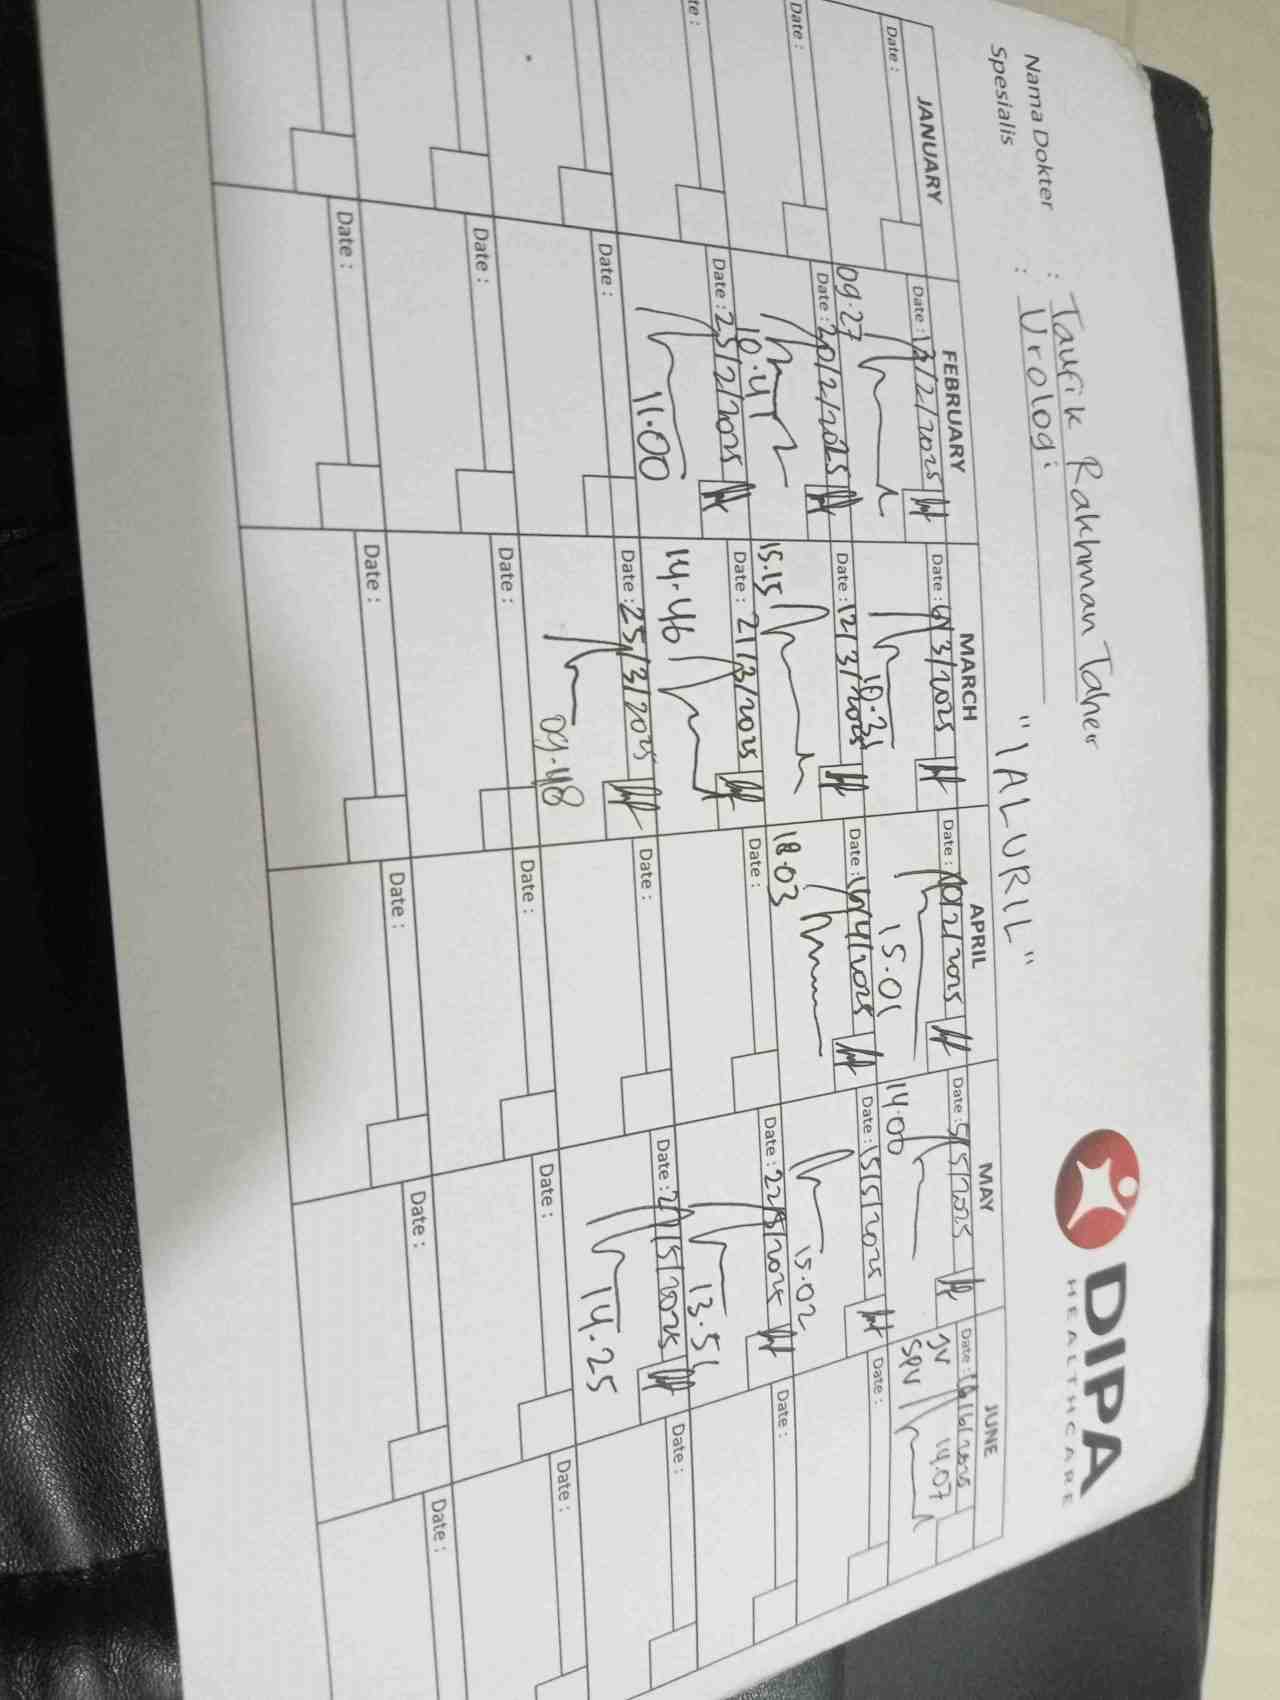 Nama Dokter : Taufik Rakhman Taher
Spesialis : Urologi
"IALURIL"
DIPA
HEALTHCARE
JANUARY FEBRUARY MARCH APRIL MAY JUNE
Date : Date : 13/2/2025 Date : 6/3/2025 Date : 10/2/2025 Date : 5/5/2025 Date : 16/6/2025
09.27 10.31 15.01 14.00 JV SPV 14.07
Date : Date : 20/2/2025 Date : 12/3/2025 Date : 16/4/2025 Date : 15/5/2025 Date :
10.41 15.15 18.03 15.02
Date : 25/2/2025 Date : 21/3/2025 Date : Date : 22/5/2025 Date :
11.00 14.46 13.51
Date : Date : 25/3/2025 Date : Date : 27/5/2025 Date :
09.48 14.25
Date : Date : Date : Date : Date :
Date : Date : Date : Date : Date :